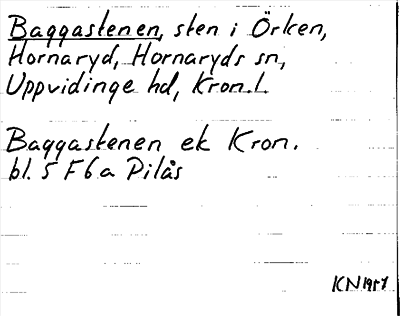 Baggastenen, sten i Örken,
Hornaryd, Hornaryds sn,
Uppvidinge hd, Kron.l.
Baggastenen ek Kron.
bl. 5 F 6 a Pilås
KN 1957